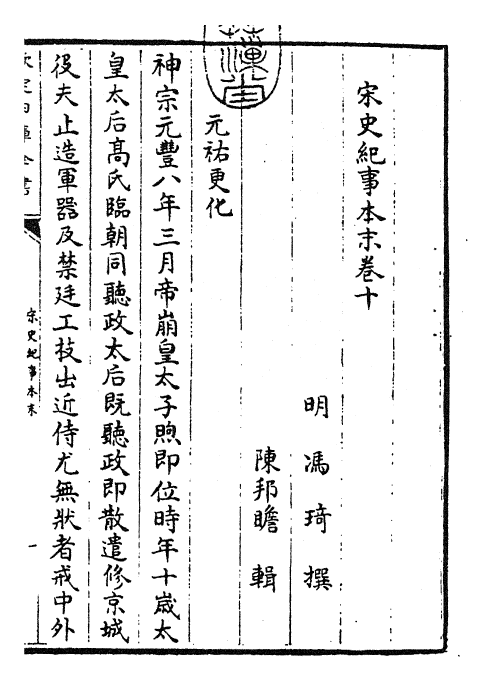 宋史紀事本末卷十
明 馮琦 撰
陳邦瞻 輯
元祐更化
神宗元豐八年三月帝崩皇太子煦即位時年十歲太
皇太后髙氏臨朝同聽政太后既聽政即散遣修京城
役夫止造軍器及禁廷工技出近侍尤無狀者戒中外
宋史紀事本末
一